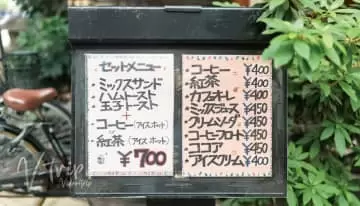 セットメニュー
・ミックスサンド
・ハムトースト
・玉子トースト
+
・コーヒー(アイス ホット)
・紅茶(アイス ホット)
¥700
・コーヒー ¥400
・紅茶 ¥400
・カフェオレ ¥450
・ミックスジュース ¥450
・クリームソーダ ¥450
・コーヒーフロート ¥450
・ココア ¥450
・アイスクリーム ¥400